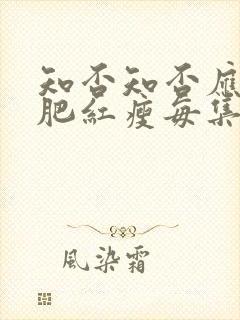 知否知否應
肥紅瘦每集
風染霜